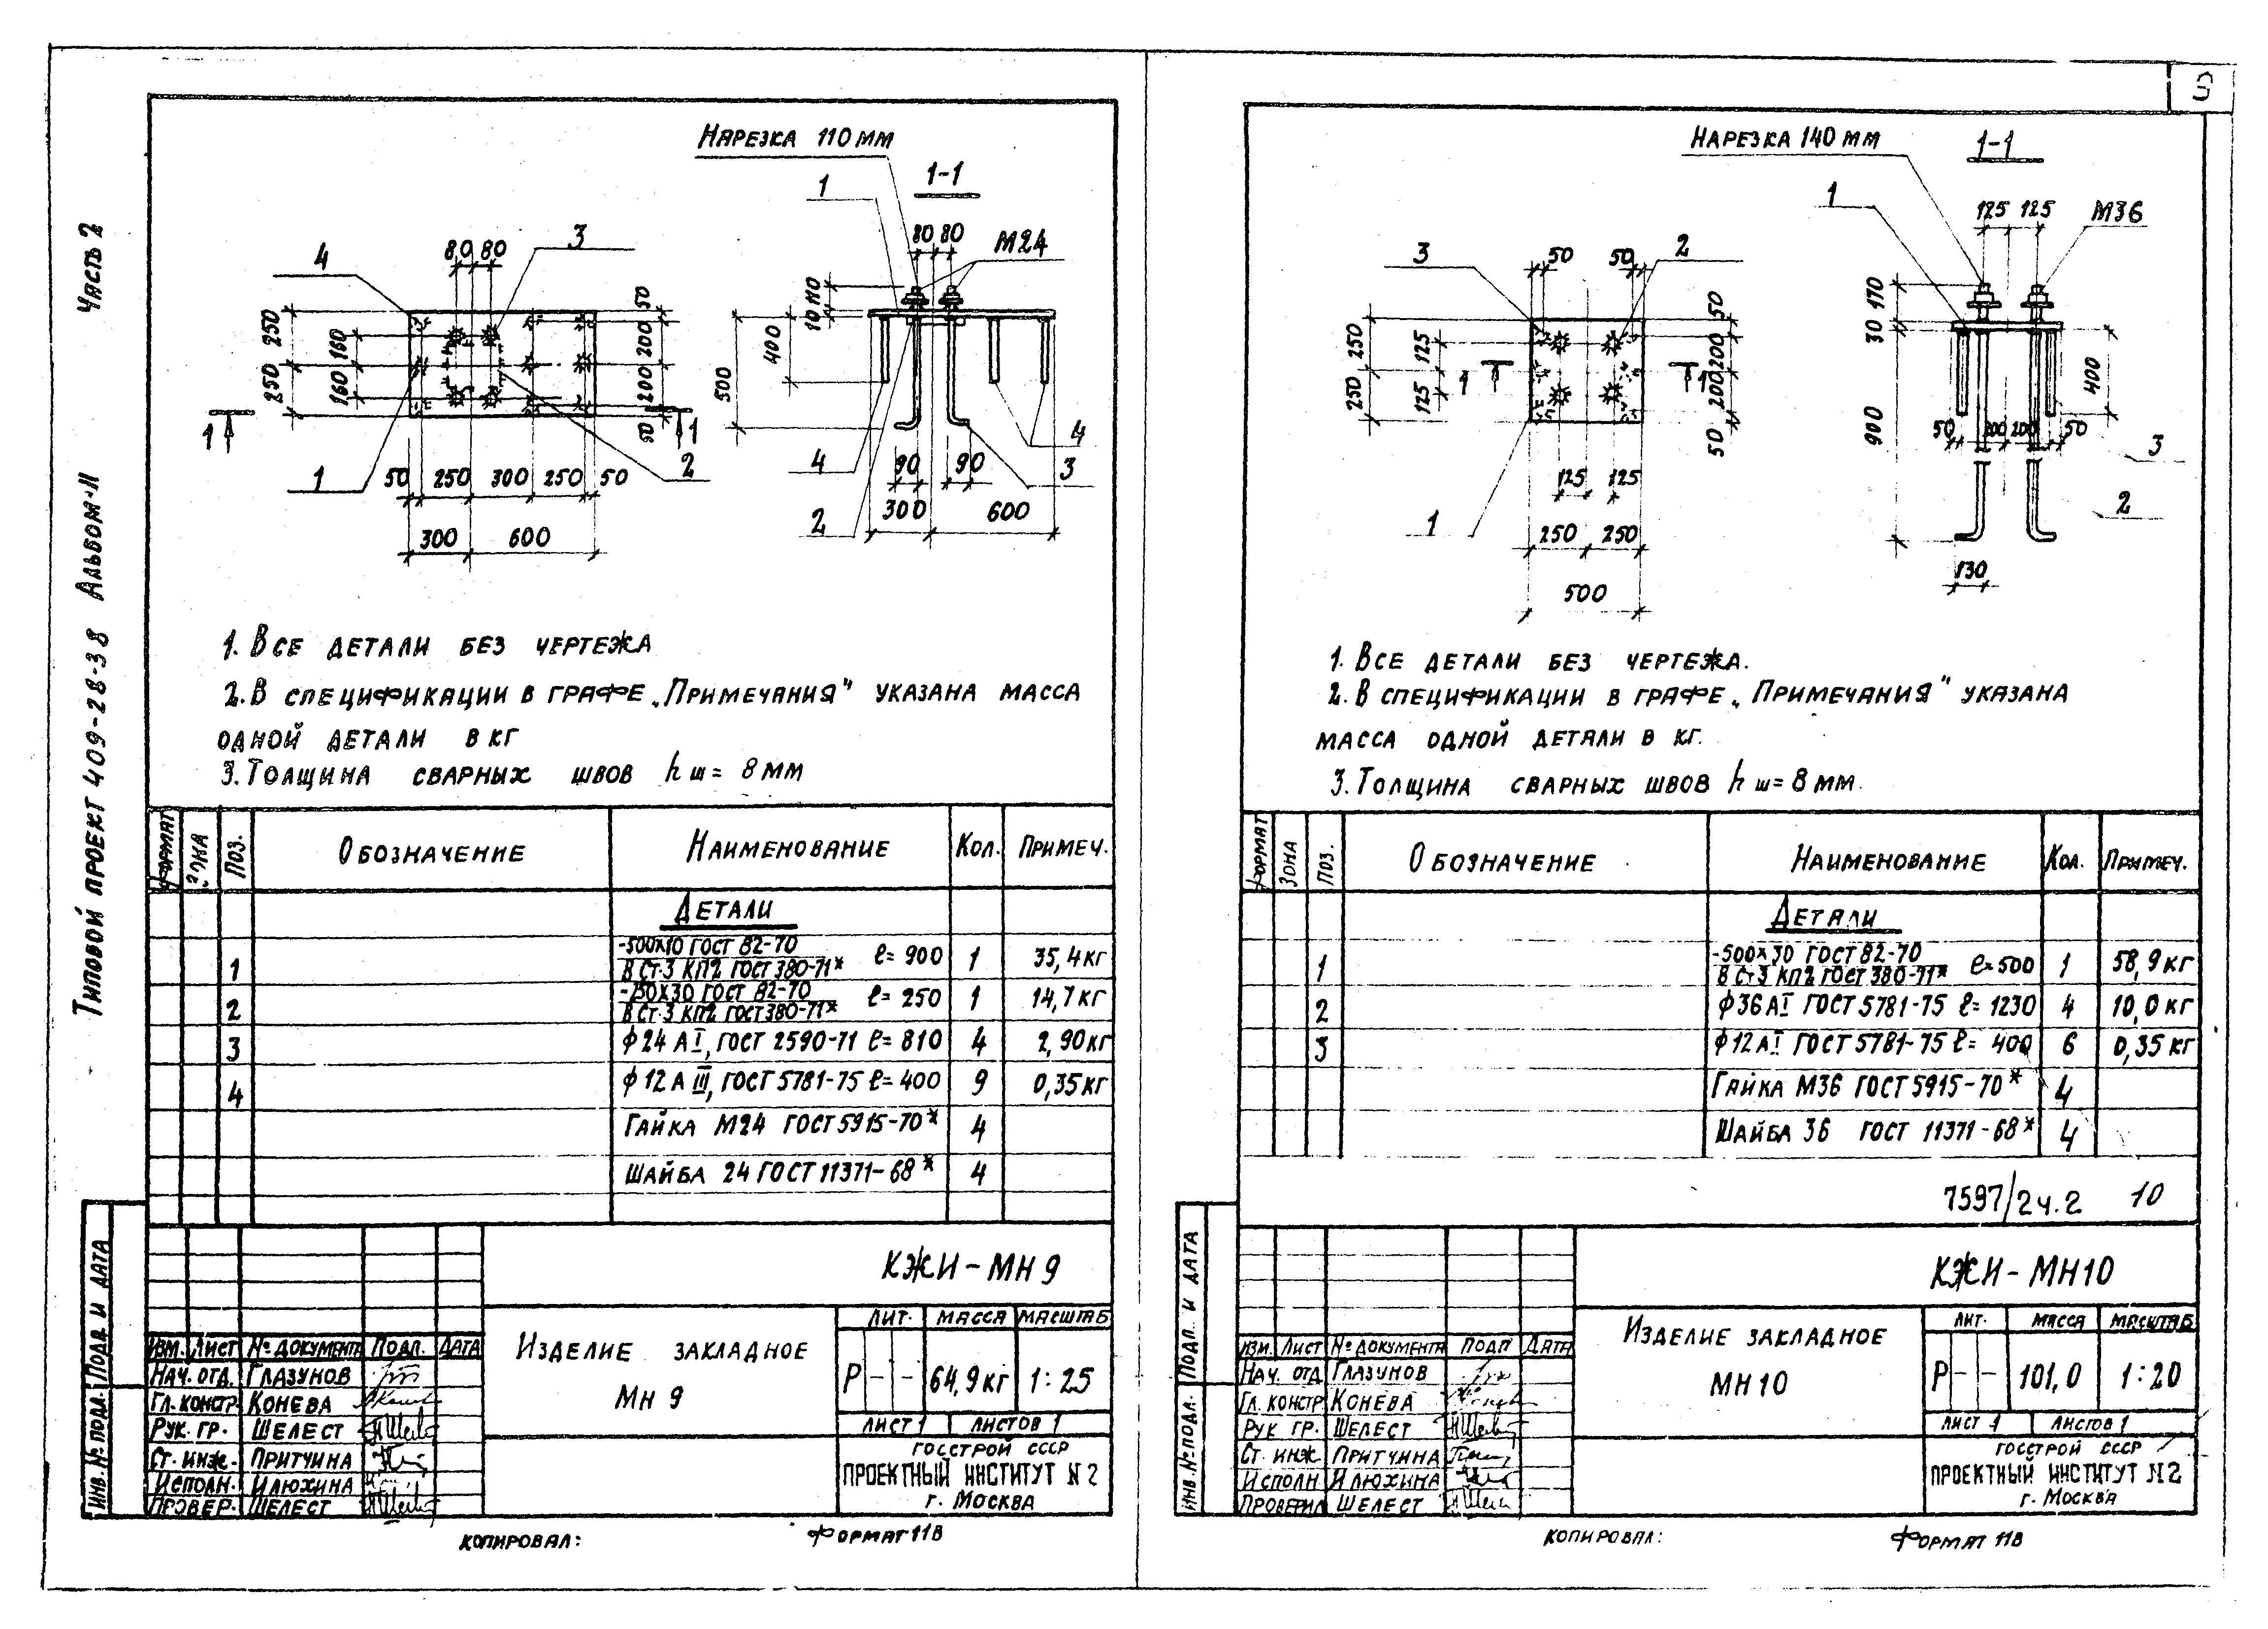 Типовой проект 409-28-38 Альбом-II Часть 2
Нарезка 110 мм
1-1
1
80 80
М24
4
80 80
3
250
250
160
160
50
200
200
50
1
1
1
2
50 250 300 250 50
300 600
110
10
400
500
4
2
90 90
4
3
300 600
1. Все детали без чертежа
2. В спецификации в графе „Примечания" указана масса
одной детали в кг
3. Толщина сварных швов hш = 8 мм
Формат Зона Поз. Обозначение Наименование Кол. Примеч.
Детали
1 -500х10 ГОСТ 82-70
В Ст.3 КП2 ГОСТ 380-71* ℓ= 900 1 35,4 кг
2 -250х30 ГОСТ 82-70
В Ст.3 КП2 ГОСТ 380-71* ℓ= 250 1 14,7 кг
3 ф 24 А I, ГОСТ 2590-71 ℓ= 810 4 2,90 кг
4 ф 12 А III, ГОСТ 5781-75 ℓ= 400 9 0,35 кг
Гайка М24 ГОСТ 5915-70* 4
Шайба 24 ГОСТ 11371-68* 4
КЖИ-МН 9
Изделие закладное
Мн 9
Лит. Масса Масштаб
Р - - 64,9 кг 1:25
Лист 1 Листов 1
Госстрой СССР
Проектный институт №2
г. Москва
Изм. Лист № документа Подп. Дата
Нач. отд. Глазунов
Гл. констр. Конева
Рук. гр. Шелест
Ст. инж. Притчина
Исполн. Илюхина
Провер. Шелест
Инв. № подл. Подп. и дата
Копировал:
Формат 11В
Нарезка 140 мм
1-1
1
125 125
М36
3
50 50
2
250
250
125
125
1
1
50
200
200
50
1
125 125
250 250
500
170
30
900
400
50 200 200 50
3
2
130
1. Все детали без чертежа.
2. В спецификации в графе „Примечания" указана
масса одной детали в кг.
3. Толщина сварных швов hш = 8 мм.
Формат Зона Поз. Обозначение Наименование Кол. Примеч.
Детали
1 -500х30 ГОСТ 82-70
В Ст3 КП2 ГОСТ 380-71* ℓ=500 1 58,9 кг
2 ф36 АI ГОСТ 5781-75 ℓ= 1230 4 10,0 кг
3 ф12 АI ГОСТ 5781-75 ℓ= 400 6 0,35 кг
Гайка М36 ГОСТ 5915-70* 4
Шайба 36 ГОСТ 11371-68* 4
7597/2 ч.2 10
КЖИ-МН10
Изделие закладное
МН10
Лит. Масса Масштаб
Р - - 101,0 1:20
Лист 1 Листов 1
Госстрой СССР
Проектный институт №2
г. Москва
Изм. Лист № документа Подп Дата
Нач. отд Глазунов
Гл. констр Конева
Рук гр. Шелест
Ст. инж Притчина
Исполн Илюхина
Проверил Шелест
Инв. № подл. Подп. и дата
Копировал:
Формат 11В